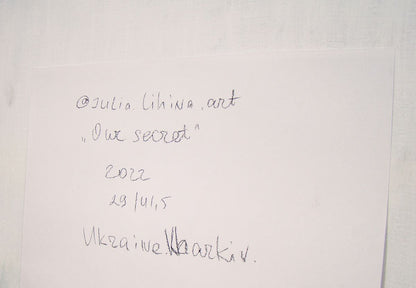 @julia.lihina.art
„Our secret"
2022
29/41,5
Ukraine. Kharkiv.